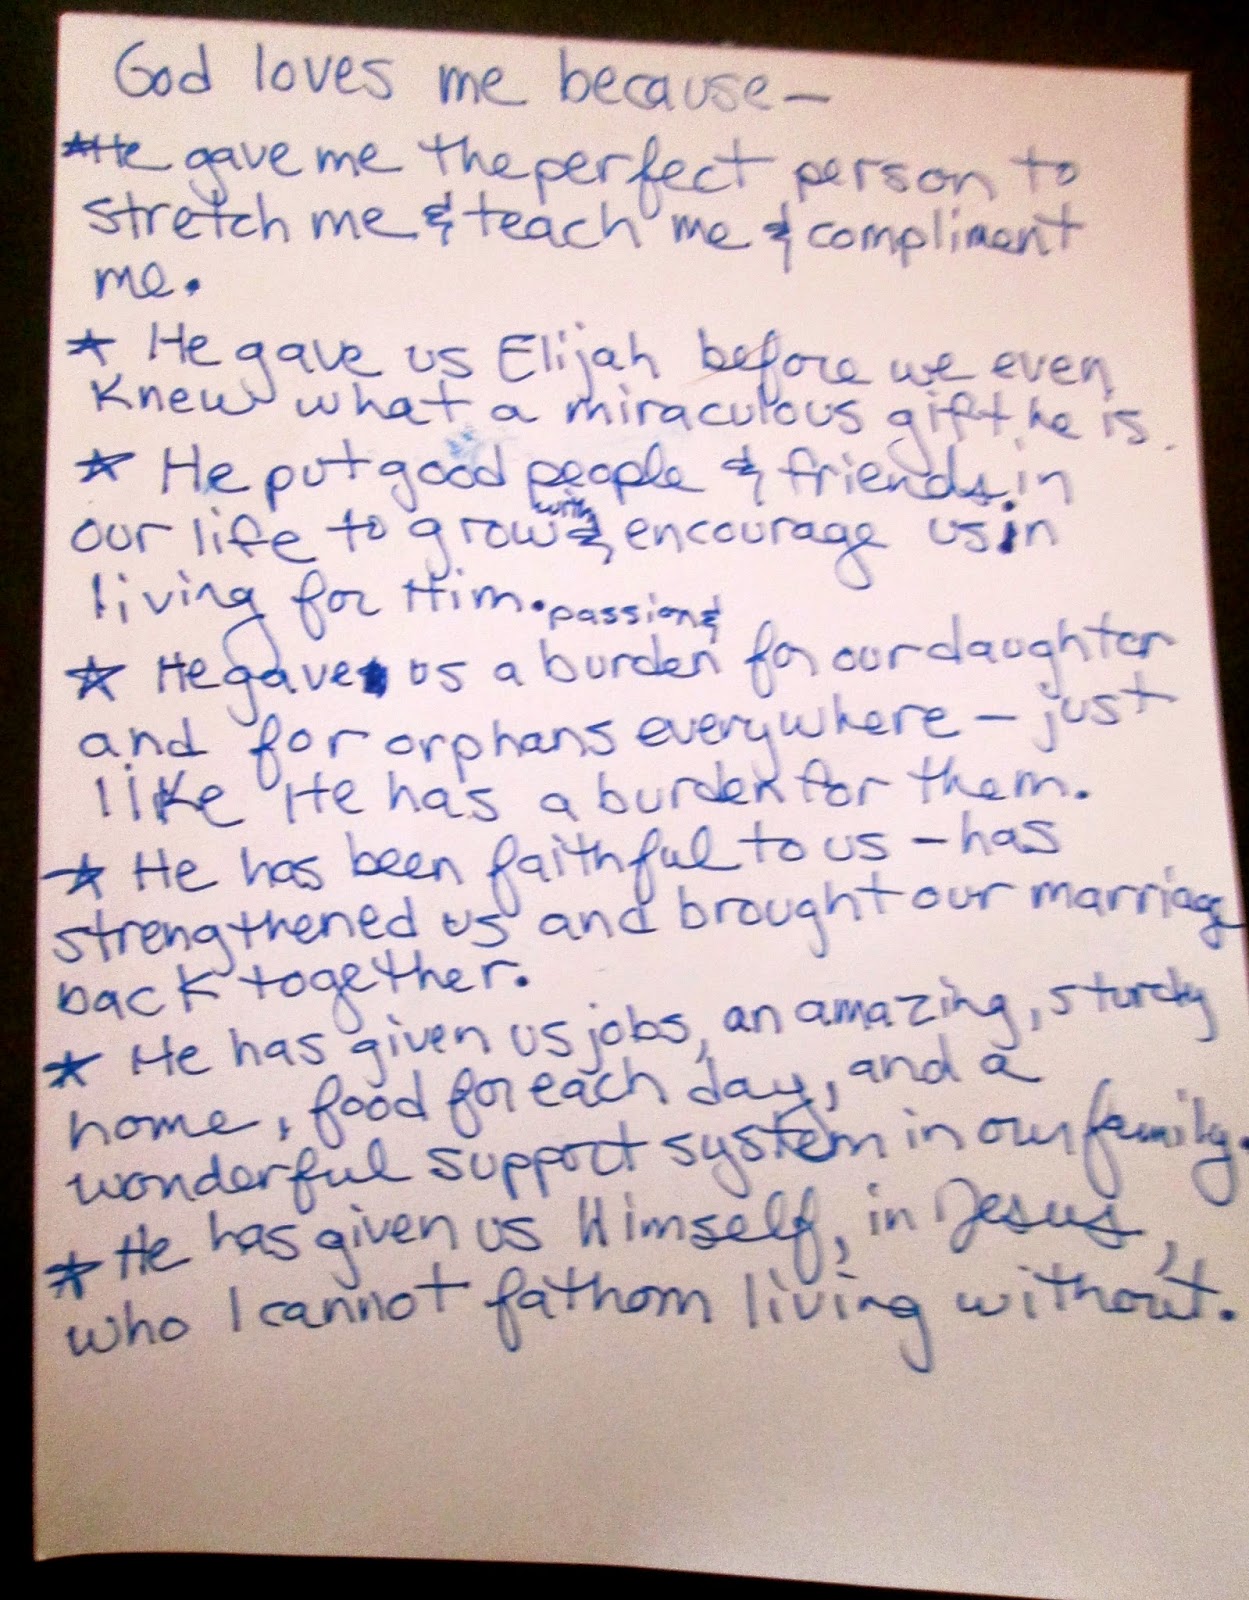 God loves me because—
*He gave me the perfect person to
stretch me & teach me & compliment
me.
* He gave us Elijah before we even
knew what a miraculous gift he is.
* He put good people & friends in
our life to grow with & encourage us in
living for Him.
* He gave us a passion & burden for our daughter
and for orphans everywhere – just
like He has a burden for them.
* He has been faithful to us – has
strengthened us and brought our marriage
back together.
* He has given us jobs, an amazing, sturdy
home, food for each day, and a
wonderful support system in our family.
* He has given us Himself, in Jesus,
who I cannot fathom living without.